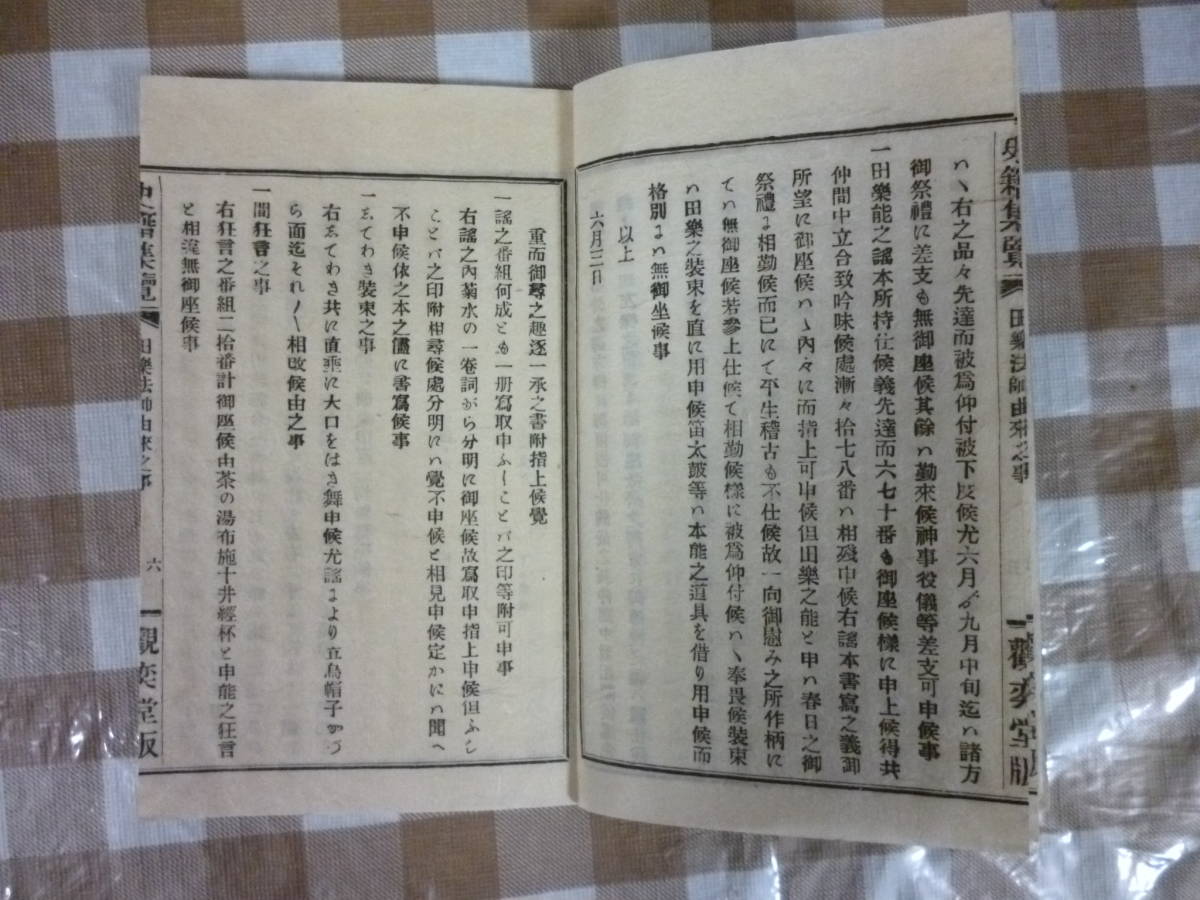 ハヽ右之品々先達而被爲仰付被下度候尤六月ゟ九月中旬迄ハ諸方
御祭禮に差支も無御座候其餘ハ勤來候神事役儀等差支可申候事
一田樂能之謠本所持仕候義先達而六七十番も御座候樣に申上候得共
仲間中立合致吟味候處漸々拾七八番ハ相殘申候右謠本書寫之義御
所望に御座候ハヽ內々に而指上可申候但田樂之能と申ハ春日之御
祭禮に相勤候而已にて平生稽古も不仕候故一向御慰み之所作柄に
てハ無御座候若參上仕候て相勤候樣に被爲仰付候ハヽ奉畏候裝束
ハ田樂之裝束を直に用申候笛太鼓等ハ本能之道具を借り用申候而
格別にハ無御坐候事
以上
六月三日
重而御尋之趣逐一承之書附指上候覺
一謠之番組何成とも一册寫取申ふしことバ之印等附可申事
右謠之內菊水の一卷詞がら分明に御座候故寫取申指上申候但ふし
ことバ之印附相尋候處分明にハ覺不申候と相見申候定かにハ聞へ
不申候依之本之儘に書寫候事
一ゑてわき裝束之事
右ゑてわき共に直垂に大口をはき舞申候尤謠により立烏帽子かづ
ら面迄それ〳〵相改候由之事
一間狂言之事
右狂言之番組二拾番計御座候由茶の湯布施十井經杯と申能之狂言
と相違無御座候事
史籍集覽 田樂法師由來之事 觀奕堂版
史籍集覽 田樂法師由來之事 六 觀奕堂版